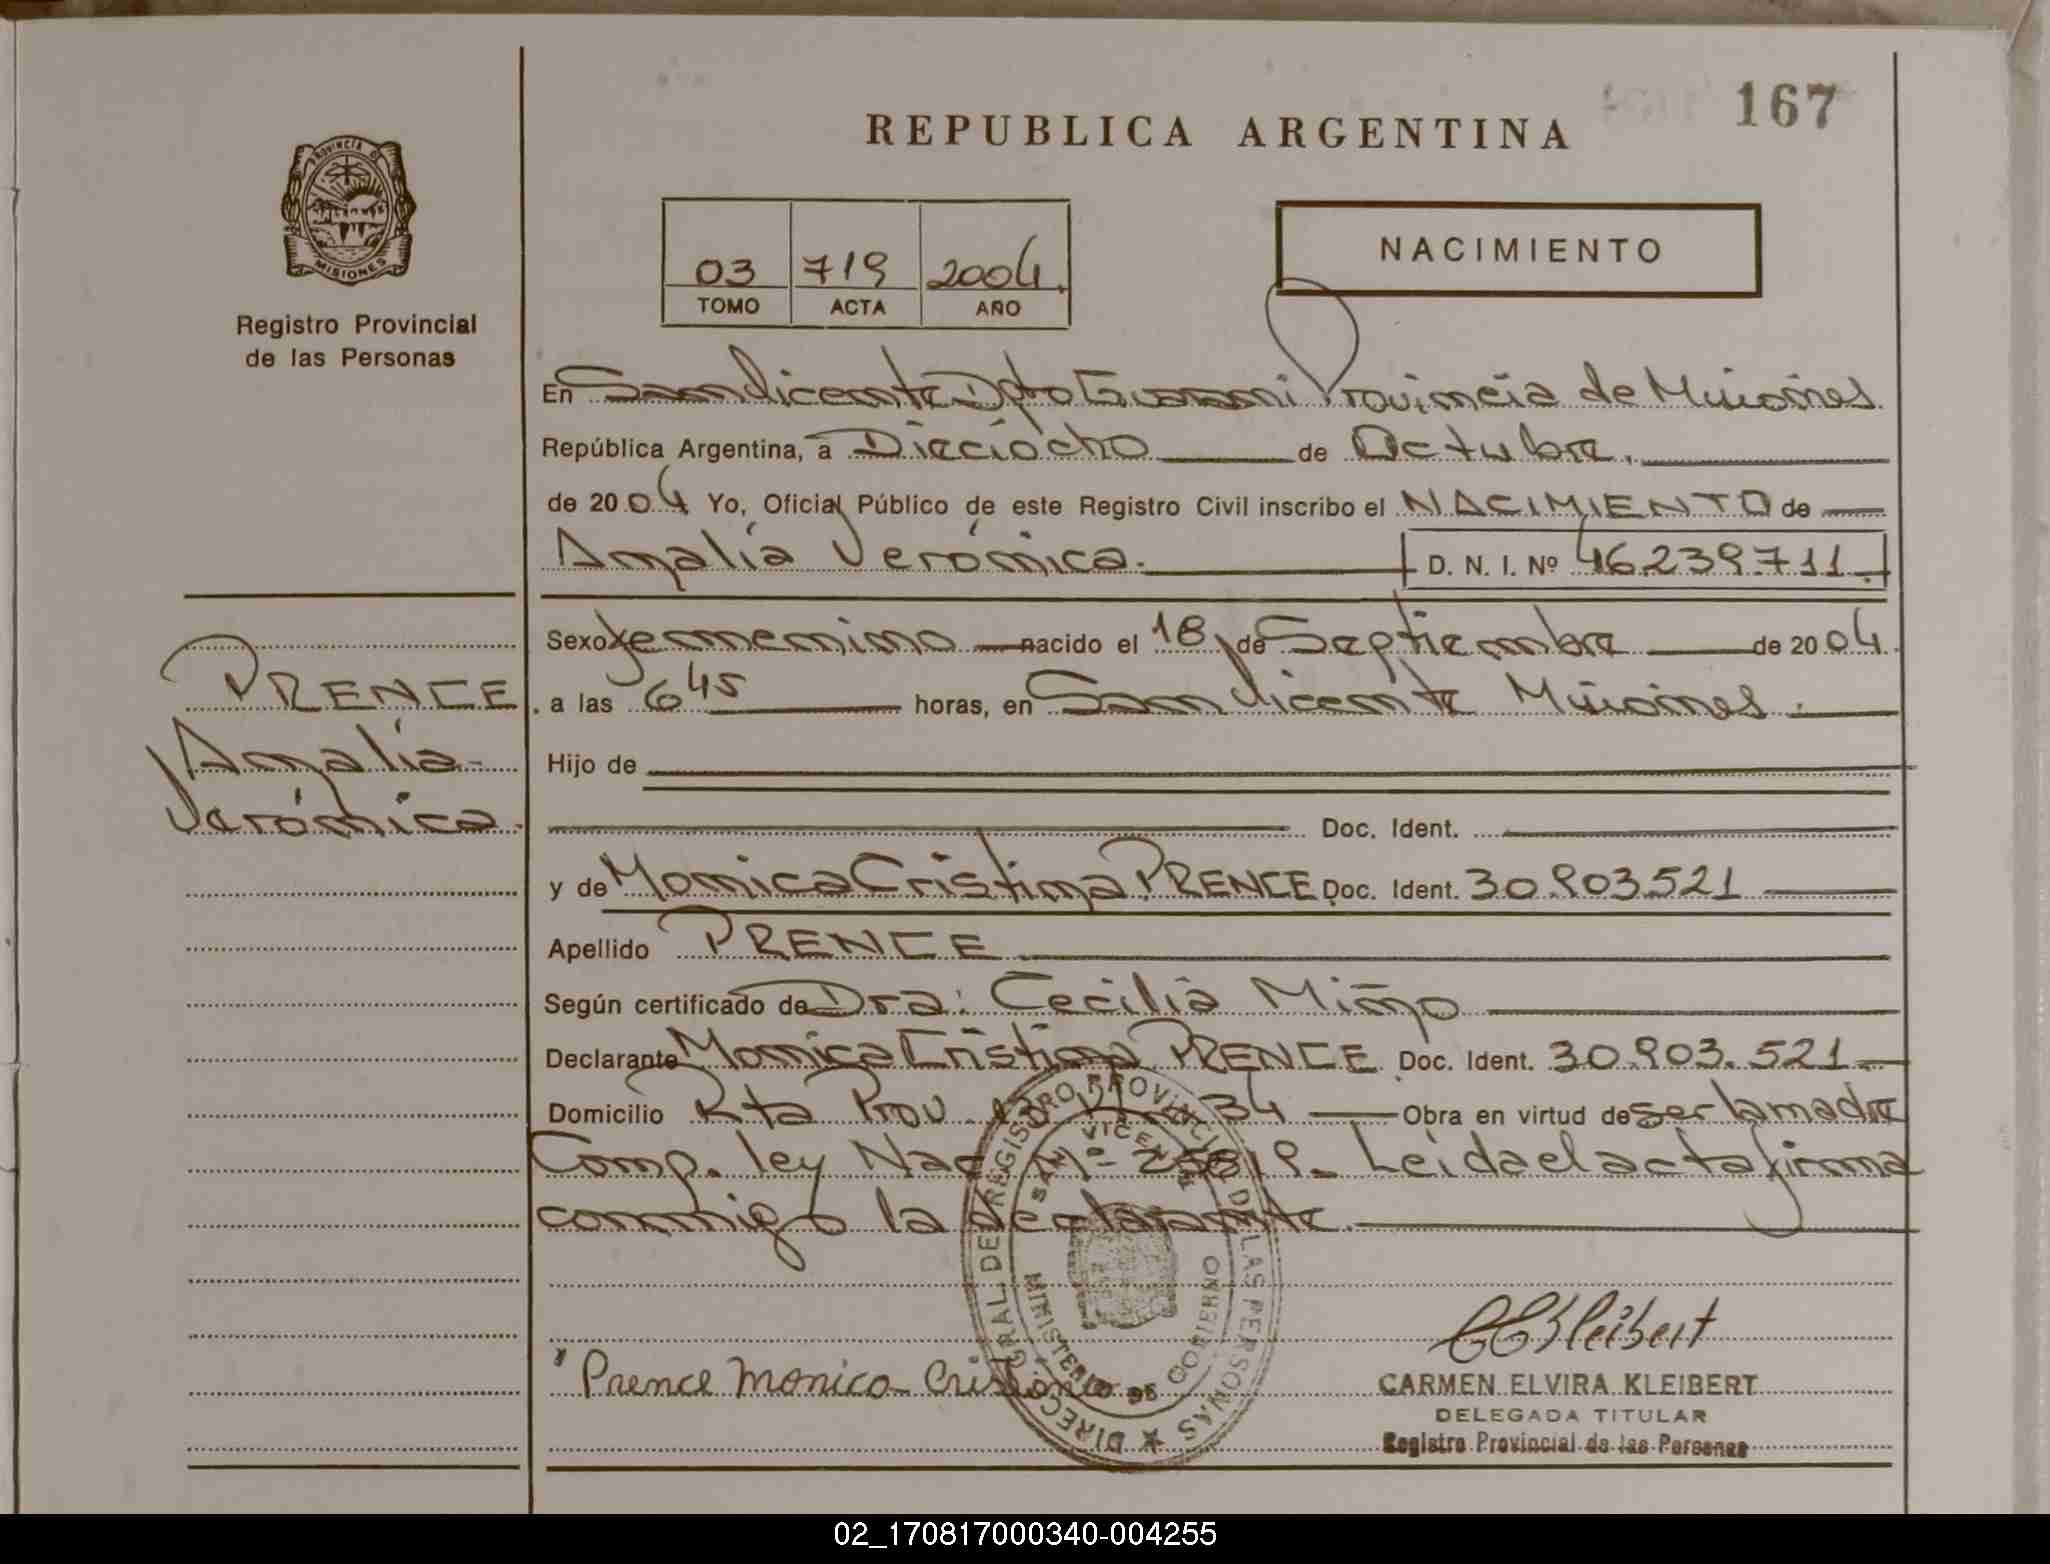 167
REPUBLICA ARGENTINA
PROVINCIA DE
MISIONES
Registro Provincial
de las Personas
03 719 2004.
TOMO ACTA AÑO
NACIMIENTO
En San Vicente Dpto Guarani Provincia de Misiones
República Argentina, a Dieciocho de Octubre.
de 2004 Yo, Oficial Público de este Registro Civil inscribo el NACIMIENTO de
Amalia Verónica. D. N. I. Nº 46.239.711.
Sexo femenino nacido el 18 de Septiembre de 2004.
PRENCE
a las 6 45 horas, en San Vicente Misiones.
Amalia
Hijo de
Verónica.
Doc. Ident.
y de Monica Cristina PRENCE Doc. Ident. 30.903.521
Apellido PRENCE
Según certificado de Dra: Cecilia Miño
Declarante Monica Cristina PRENCE Doc. Ident. 30.903.521
Domicilio Rta Prov 34 Obra en virtud de ser la madre
Comp. ley Nac Nº Leida el acta firma
conmigo la declarante.
DIRECC. GRAL. DEL REGISTRO PROVINCIAL DE LAS PERSONAS
SAN VICENTE
MINISTERIO DE GOBIERNO
CEKleibert
Prence Monica Cristina
CARMEN ELVIRA KLEIBERT
DELEGADA TITULAR
Registro Provincial de las Personas
02_170817000340-004255